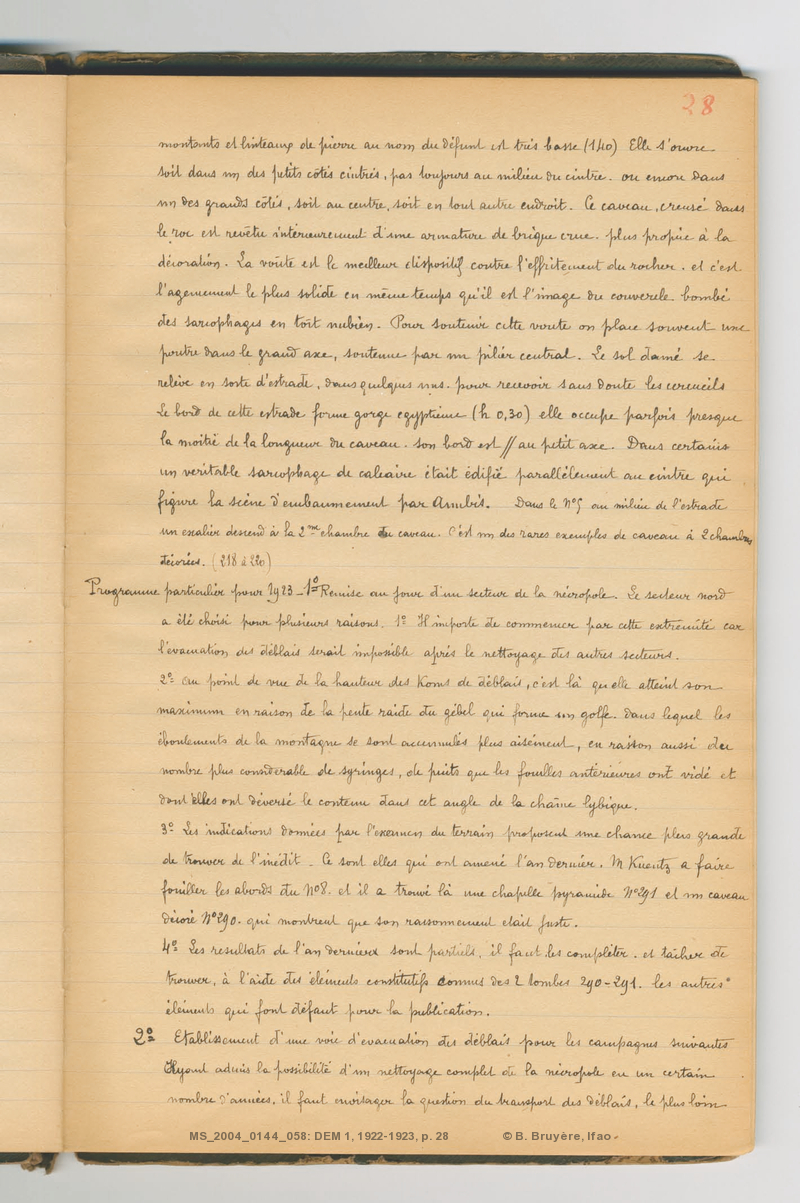 28
montants et linteaux de pierre au nom du défunt est très basse (1,40) Elle s'ouvre
soit dans un des petits côtés cintrés, pas toujours au milieu du cintre. ou encore dans
un des grands côtés, soit au centre, soit en tout autre endroit. Ce caveau, creusé dans
le roc est revêtu intérieurement d'une armature de brique crue. plus propice à la
décoration. La voûte est le meilleur dispositif contre l'effritement du rocher. et c'est
l'agencement le plus solide en même temps qu'il est l'image du couvercle bombé
des sarcophages en toit nubien. Pour soutenir cette voute on place souvent une
poutre dans le grand axe, soutenue par un pilier central. Le sol damé se
relève en sorte d'estrade, dans quelques uns. pour recevoir sans doute les cercueils
Le bord de cette estrade forme gorge egyptienne (h 0,30) elle occupe parfois presque
la moitié de la longueur du caveau. son bord est // au petit axe. Dans certains
un veritable sarcophage de calcaire était édifié parallèlement au cintre qui
figure la scène d'embaumement par Anubis. Dans le N°5 au milieu de l'estrade
un escalier descend à la 2me chambre du caveau. C'est un des rares exemples de caveau à 2 chambres
décorées. (218 à 220)
Programme particulier pour 1923 _ 1° Remise au jour d'un secteur de la nécropole. Le secteur nord
a été choisi pour plusieurs raisons. 1° Il importe de commencer par cette extremité car
l'évacuation des déblais serait impossible après le nettoyage des autres secteurs.
2° au point de vue de la hauteur des Koms de déblais, c'est là qu'elle atteint son
maximum en raison de la pente raide du gébel qui forme un golfe. dans lequel les
éboulements de la montagne se sont accumulés plus aisément, en raison aussi du
nombre plus considerable de syringes, de puits que les fouilles antérieures ont vidé et
dont elles ont déversé le contenu dans cet angle de la chaîne lybique.
3° Les indications données par l'examen du terrain proposent une chance plus grande
de trouver de l'inédit _ Ce sont elles qui ont amené l'an dernier. M Kuentz a faire
fouiller les abords du N°8. et il a trouvé là une chapelle pyramide N°291 et un caveau
décoré N°290. qui montrent que son raisonnement etait juste.
4° Les resultats de l'an dernier sont partiels, il faut les compléter. et tâcher de
trouver, à l'aide des éléments constitutifs connus des 2 tombes 290-291. les autres
éléments qui font défaut pour la publication.
2° Etablissement d'une voie d'évacuation des déblais pour les campagnes suivantes
Ayant admis la possibilité d'un nettoyage complet de la nécropole en un certain
nombre d'années, il faut envisager la question du transport des déblais, le plus loin
MS_2004_0144_058: DEM 1, 1922-1923, p. 28 © B. Bruyère, Ifao